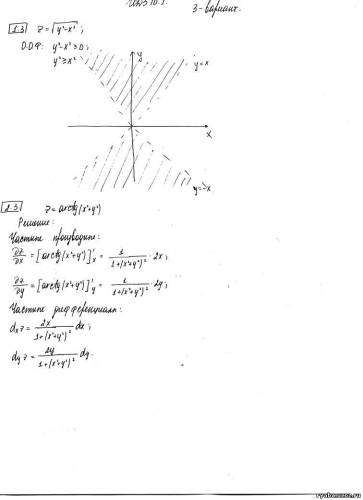 ИДЗ 10.1. 3-вариант.
1.3 z = √(y²-x²) ;
О.О.Ф: y²-x² ≥ 0 ;
y² ≥ x²
y
y=x
x
y=-x
2.3 z = arcctg(x²+y²)
Решение:
Частные производные:
∂z/∂x = [arcctg(x²+y²)]'ₓ = 1/(1+(x²+y²)²) · 2x ;
∂z/∂y = [arcctg(x²+y²)]'ᵧ = 1/(1+(x²+y²)²) · 2y ;
Частные дифференциалы:
dₓz = 2x/(1+(x²+y²)²) dx ;
dᵧz = 2y/(1+(x²+y²)²) dy.